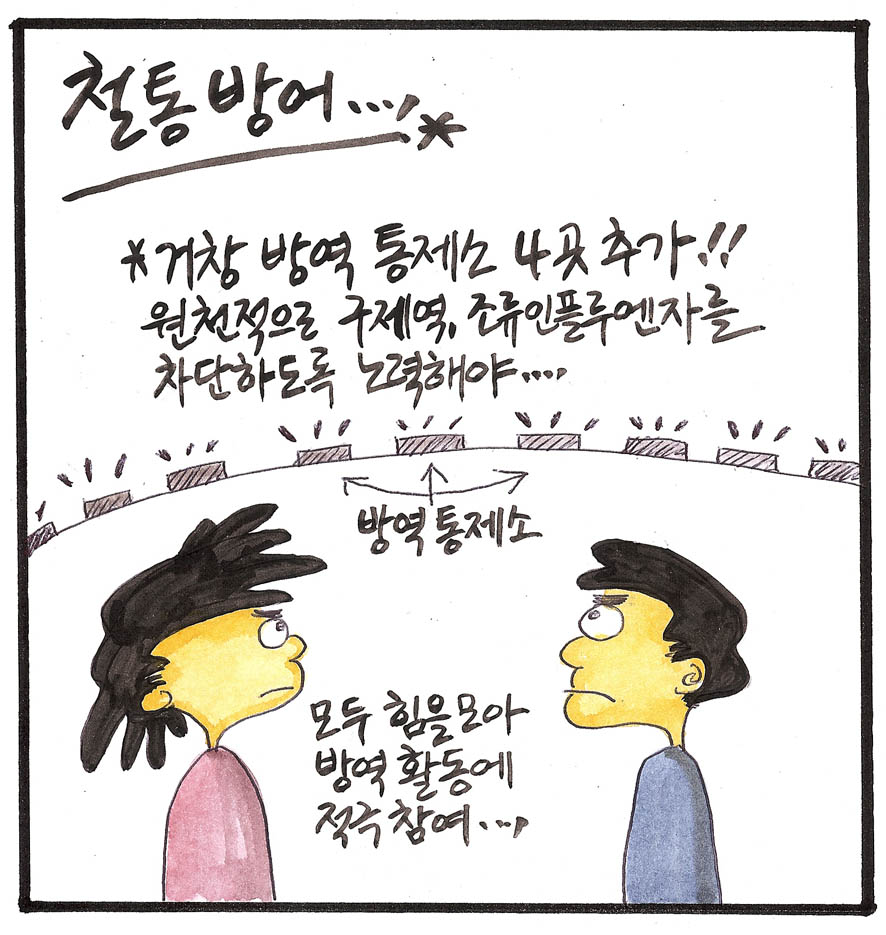 철통 방어...,*
*거창 방역 통제소 4곳 추가!!
원천적으로 구제역, 조류인플루엔자를
차단하도록 노력해야....
방역 통제소
모두 힘을 모아
방역 활동에
적극 참여...,